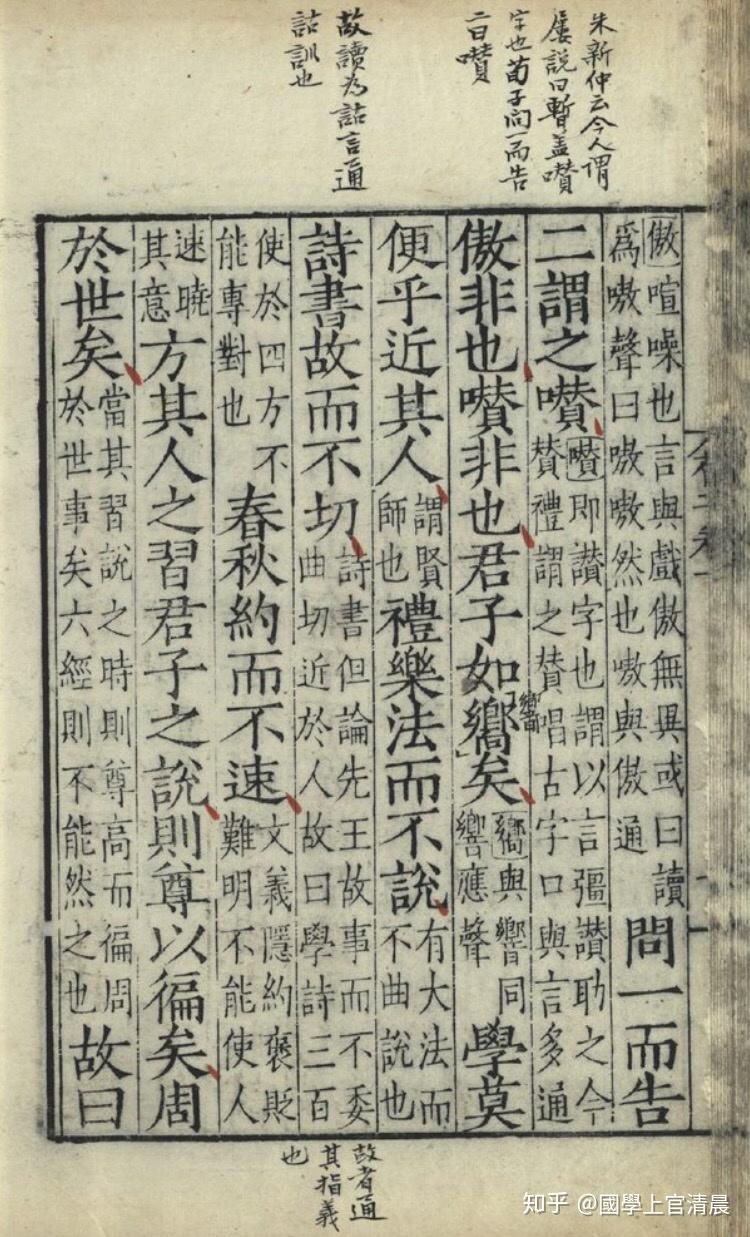 朱新仲云今人謂
屢説曰暫盖囋
字也荀子问一而告
二曰囋
故讀為詁言通
詁訓也
傲喧噪也言與戲傲無異或曰讀
為嗷聲曰嗷嗷然也嗷與傲通
問一而告
二謂之囋
囋即讃字也謂以言彊讃助之今
贊禮謂之贊唱古字口與言多通
傲非也囋非也君子如嚮矣
響
嚮與響同
響應聲
學莫
便乎近其人
謂賢
師也
禮樂法而不説
有大法而
不曲説也
詩書故而不切
詩書但論先王故事而不委
曲切近於人故曰學詩三百
使於四方不
能專對也
春秋約而不速
文義隱約褒貶
難明不能使人
速曉
其意
方其人之習君子之説則尊以徧矣周
於世矣
當其習説之時則尊高而徧周
於世事矣六經則不能然之也
故曰
故者通
其指義
也
知乎 @國學上官清晨